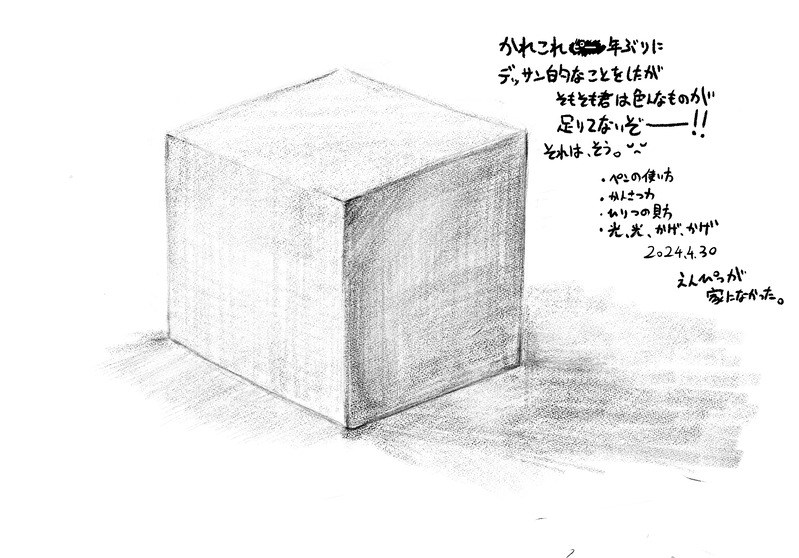 かれこれ 年ぶりに
デッサン的なことをしたが
そもそも君は色んなものが
足りてないぞ──!!
それは、そう。
・ペンの使い方
・かんさつ力
・ひりつの見方
・光、光、かげ、かげ
2024.4.30
えんぴつが
家になかった。